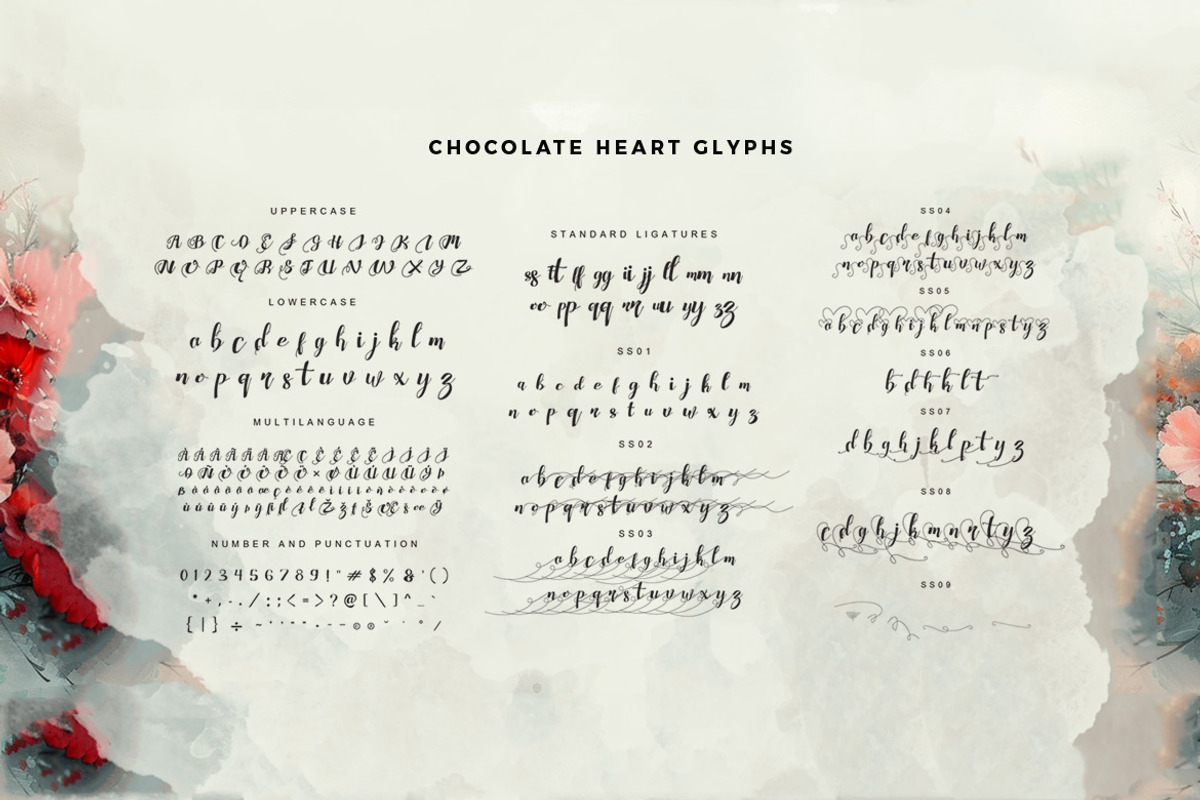 CHOCOLATE HEART GLYPHS
UPPERCASE
A B C D E F G H I J K L M
N O P Q R S T U V W X Y Z
LOWERCASE
a b c d e f g h i j k l m
n o p q r s t u v w x y z
MULTILANGUAGE
NUMBER AND PUNCTUATION
0 1 2 3 4 5 6 7 8 9 ! " # $ % & ' ( )
* + , - . / : ; < = > ? @ [ \ ] ^ _ `
STANDARD LIGATURES
ss tt ff gg ii jj ll mm nn
oo pp qq rr uu yy zz
SS01
a b c d e f g h i j k l m
n o p q r s t u v w x y z
SS02
a b c d e f g h i j k l m
n o p q r s t u v w x y z
SS03
a b c d e f g h i j k l m
n o p q r s t u v w x y z
SS04
a b c d e f g h i j k l m
n o p q r s t u v w x y z
SS05
a b c d g h i j k l m n p s t y z
SS06
b d h k l t
SS07
d b g h j k l p t y z
SS08
c d g h j k m n r t y z
SS09